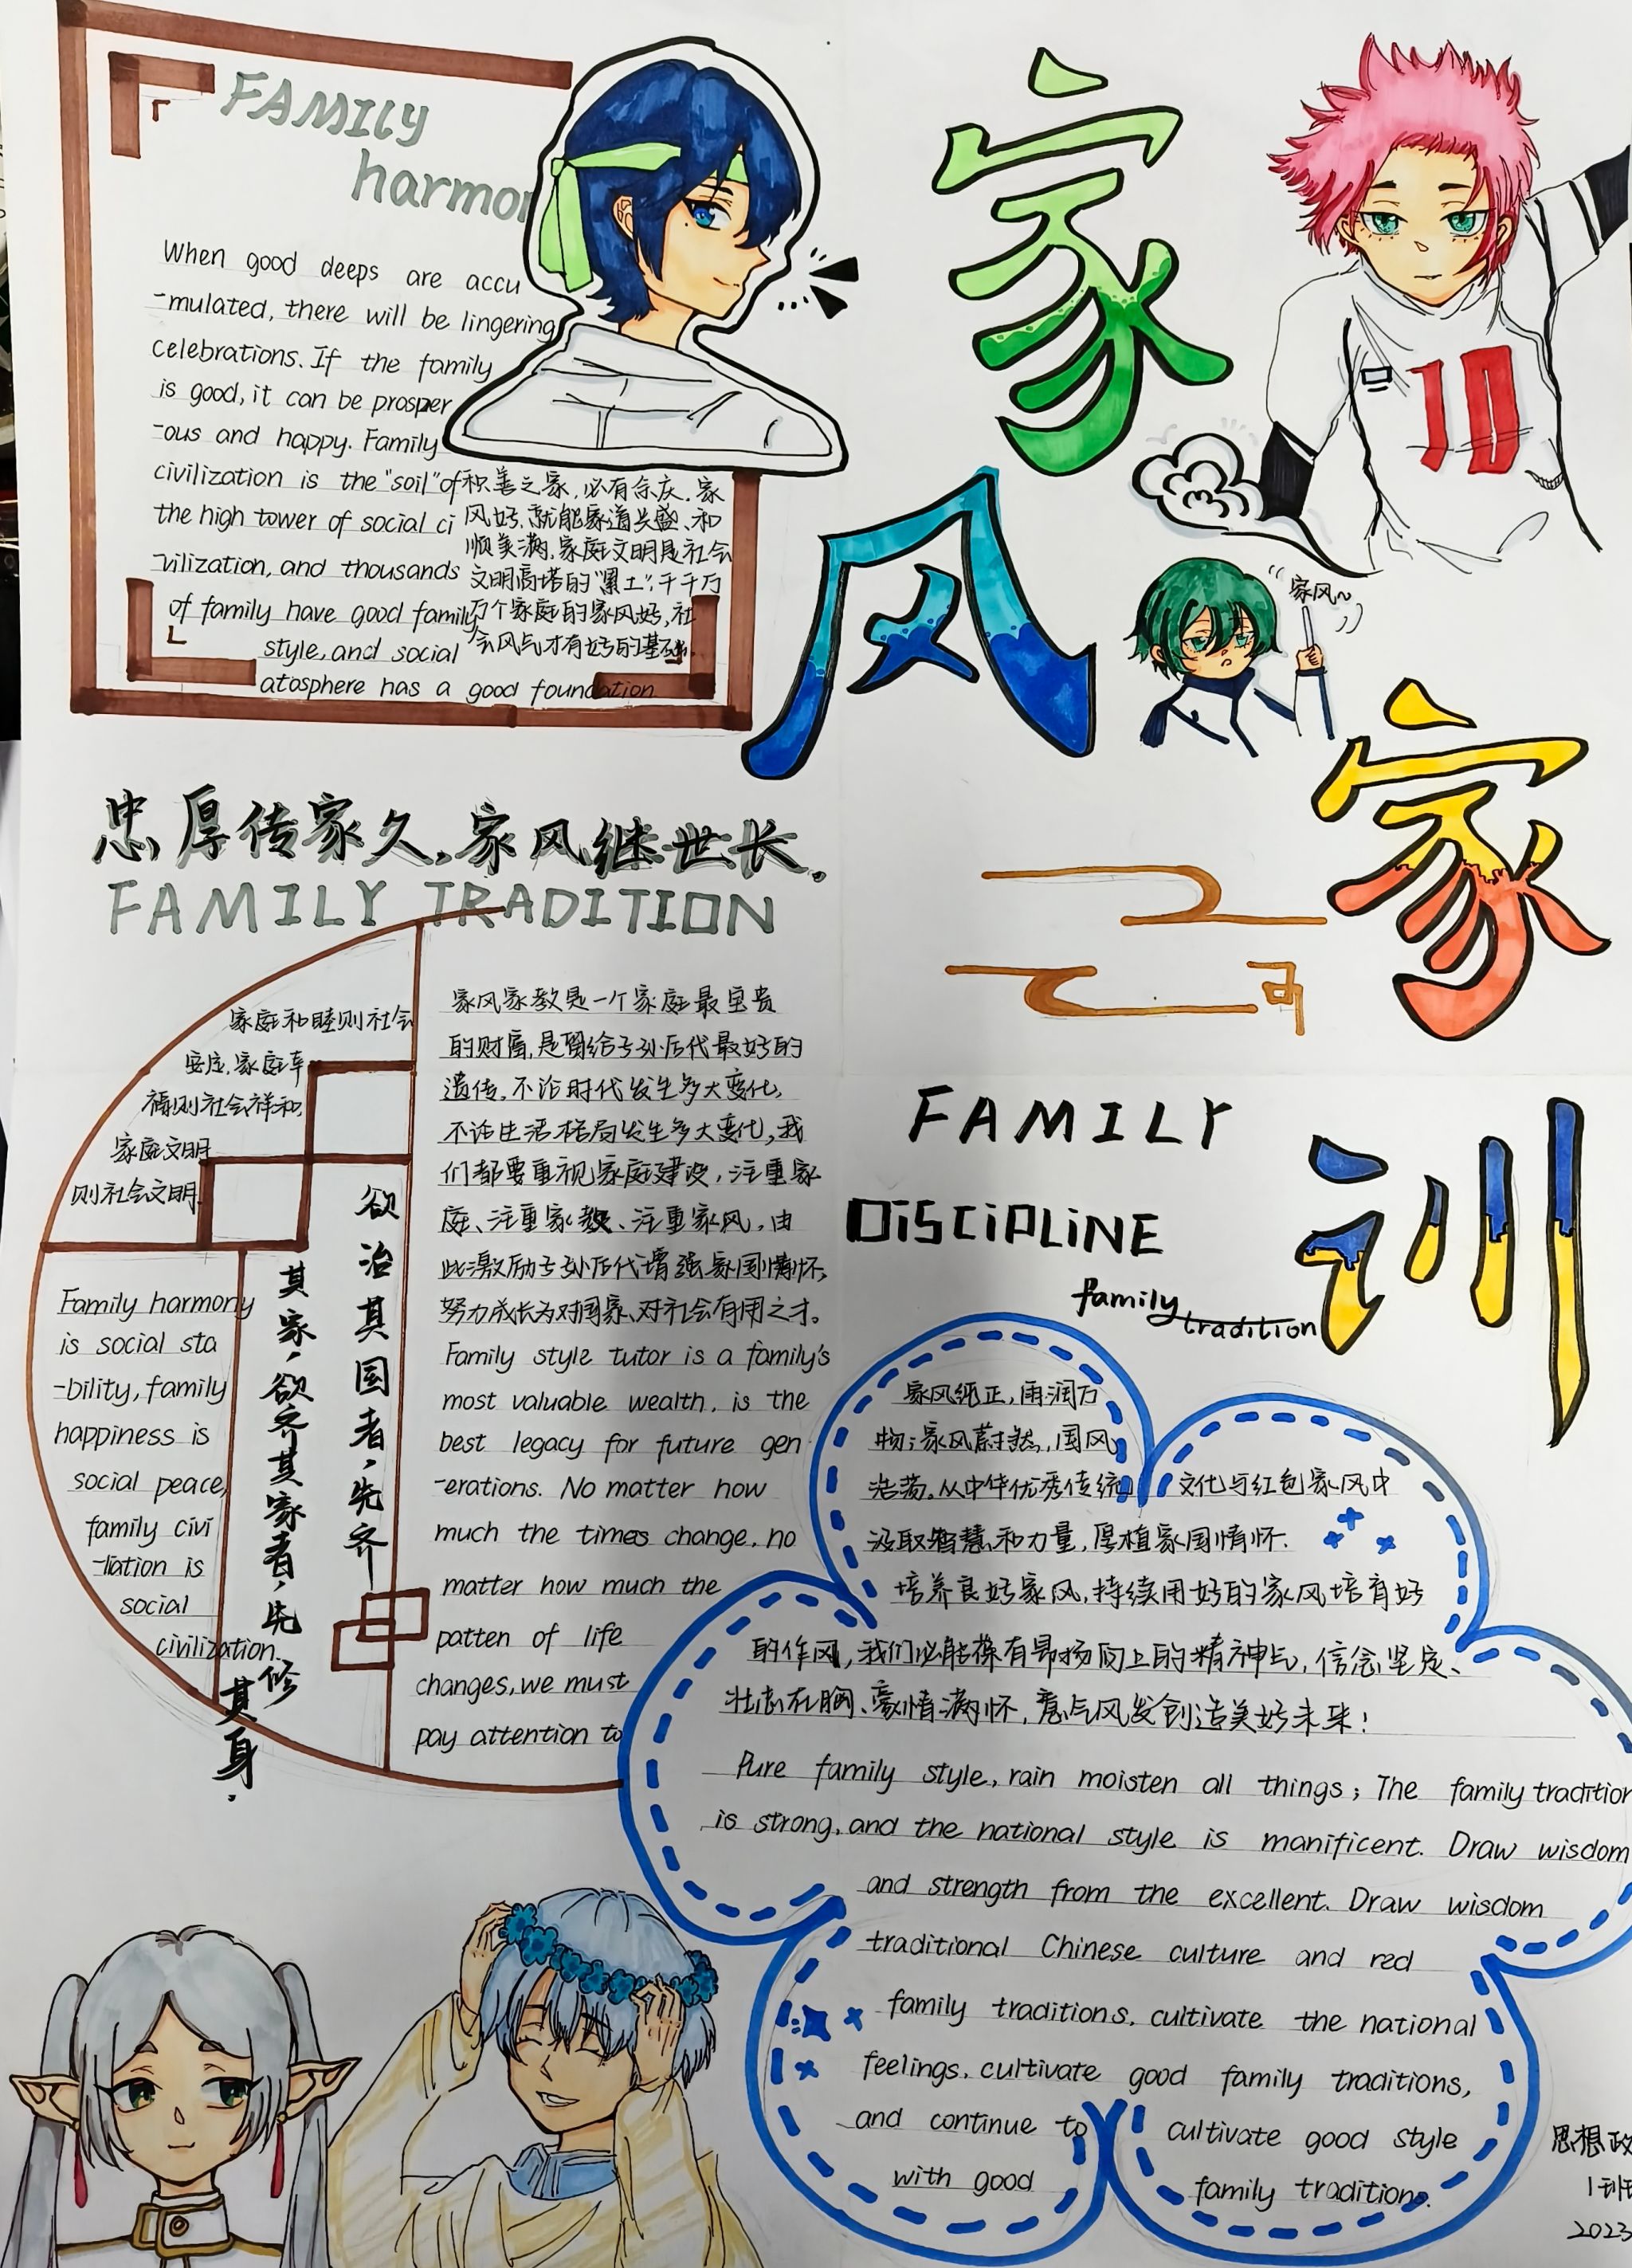 FAMILY
harmon
When good deeps are accu
-mulated, there will be lingering
celebrations. If the family
is good, it can be prosper
-ous and happy. Family
civilization is the "soil" of
the high tower of social ci
-vilization, and thousands
of family have good family
style, and social
atosphere has a good foundation
积善之家,必有余庆.家
风好,就能家道兴盛、和
顺美满.家庭文明是社会
文明高塔的"黑土",千千万
万个家庭的家风好,社
会风气才有好的基础.
家
风
家
训
10
家风~
FAMILY
DISCIPLINE
family
tradition
忠厚传家久,家风继世长。
FAMILY TRADITION
家庭和睦则社会
安定,家庭幸
福则社会祥和,
家庭文明
则社会文明.
Family harmony
is social sta
-bility, family
happiness is
social peace,
family civi
-liation is
social
civilization.
欲治其国者,先齐
其家,欲齐其家者,先修
其身.
家风家教是一个家庭最宝贵
的财富,是留给子孙后代最好的
遗传.不论时代发生多大变化,
不论生活格局发生多大变化,我
们都要重视家庭建设,注重家
庭、注重家教、注重家风,由
此激励子孙后代增强家国情怀,
努力成长为对国家、对社会有用之才。
Family style tutor is a family's
most valuable wealth, is the
best legacy for future gen
-erations. No matter how
much the times change, no
matter how much the
patten of life
changes, we must
pay attention to
家风纯正,雨润万
物;家风蔚然,国风
浩荡。从中华优秀传统文化与红色家风中
汲取智慧和力量,厚植家国情怀.
培养良好家风,持续用好的家风培育好
的作风,我们必能葆有昂扬向上的精神气,信念坚定、
壮志在胸、豪情满怀,意气风发创造美好未来!
Pure family style, rain moisten all things; The family tradition
is strong, and the national style is manificent. Draw wisdom
and strength from the excellent. Draw wisdom
traditional Chinese culture and red
family traditions, cultivate the national
feelings, cultivate good family traditions,
and continue to cultivate good style
with good family traditions.
思想政
1班
2023